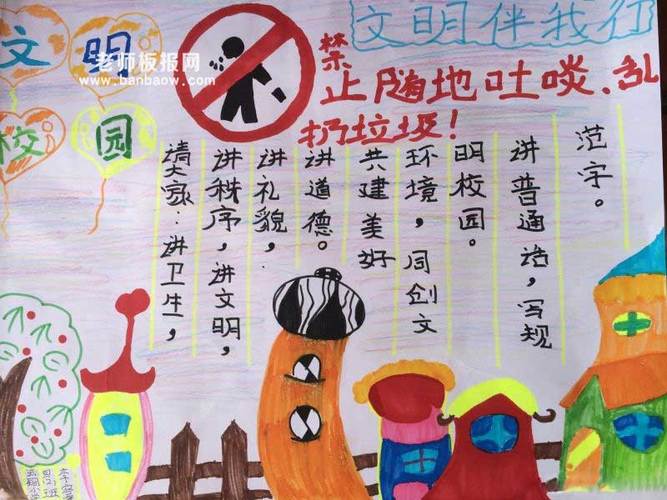 文明伴我行
文明
校园
老师板报网
www.banbaow.com
禁止随地吐啖、乱
扔垃圾！
请大家：讲卫生，
讲秩序，讲文明，
讲礼貌，
讲道德。
共建美好
环境，同创文
明校园。
讲普通话，写规
范字。